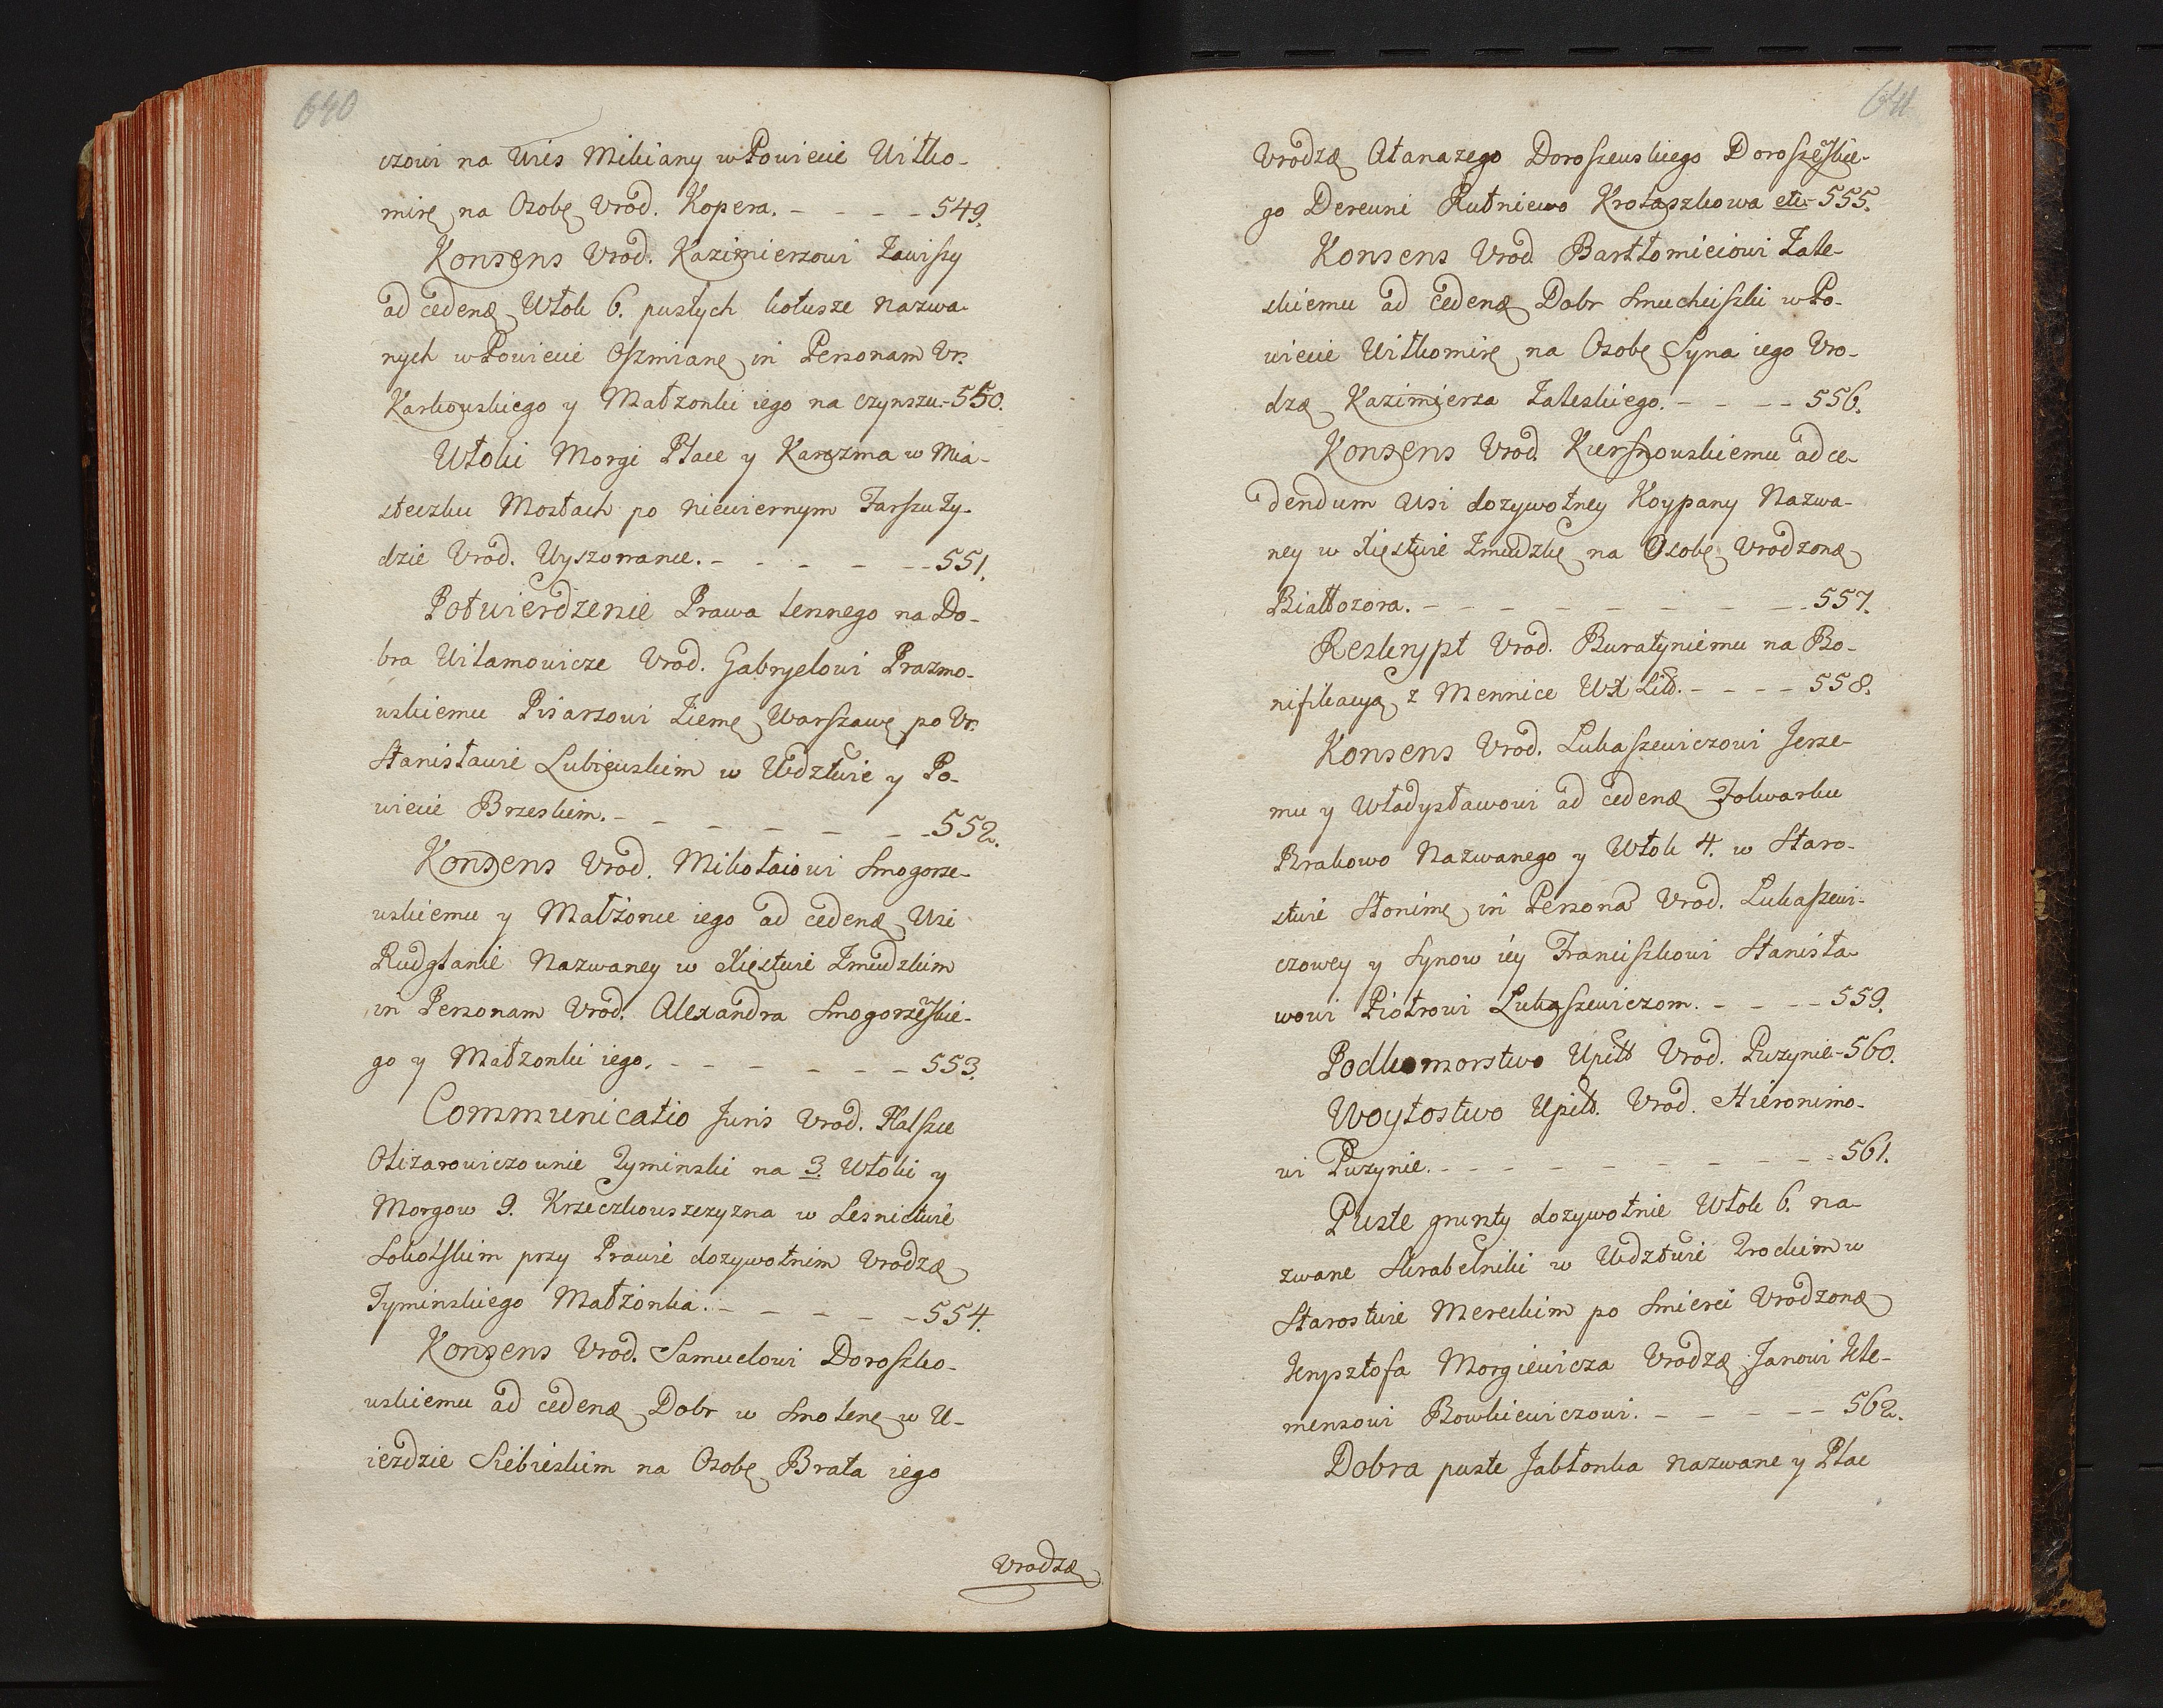 640
czowi na Wieś Mikiany w Powiecie Wiłko-
mirę na Osobę Vrod. Kopera. - - - - 549.
Konsens Vrod. Kazimierzowi Zawiszy
ad cedenæ Włok 6. pustych kołusze nazwa-
nych w Powiecie Oszmianę in Personam Vr.
Karkowskiego y Małzonki iego na czynszu.-550.
Włoki Morgi Place y Karczma w Mia-
steczku Mostach po niewiernym Jarszu Zy-
dzie Vrod. Wyszomance. - - - - - - 551.
Potwierdzenie Prawa lennego na Do-
bra Witamowicze Vrod. Gabryelowi Prazmo-
wskiemu Pisarzowi Zieme Warszawę po Vr.
Stanisławie Lubięwskim w Wdztwie y Po-
wiecie Brzeskim. - - - - - - - 552.
Konsens Vrod. Mikołaiowi Smogorze-
wskiemu y Małżonce iego ad cedenæ Wsi
Rudgłanie Nazwaney w Xięstwie Zmudzkim
in Personam Vrod. Alexandra Smogorzeskie-
go y Małzonki iego. - - - - - - - 553.
Communicatio Juris Vrod. Halszce
Olizarowiczownie Tyminski na 3. Włoki y
Morgow 9. Krzeczkowszczyzna w Lesnictwie
Sokołskim przy Prawie dozywotnim Vrodzæ
Tyminskiego Małżonka. - - - - - 554.
Konsens Vrod. Samuelowi Doroszko-
wskiemu ad cedenæ Dobr w Smolenę w U-
iezdzie Siebieskim na Osobę Brata iego
Vrodzæ
641
Vrodzæ Atanazego Doroszewskiego Doroszęskie-
go Derewni Rutniewo Krotaszkowa etc-555.
Konsens Vrod Bartłomieiowi Zale-
skiemu ad cedenæ Dobr Smuchiszki w Po-
wiecie Wiłkomirę na Osobę Syna iego Vro-
dzæ Kazimierza Zaleskiego. - - - - 556.
Konsens Vrod. Kiersnowskiemu ad ce-
dendum Wsi dozywotney Koypany Nazwa-
ney w Xięstwie Zmudzkę na Osobę Vrodzonæ
Białłozora. - - - - - - - - - 557.
Reskrypt Vrod. Buratyniemu na Bo-
nifikacyą z Mennice WX Litt. - - - - 558.
Konsens Vrod. Lukaszewiczowi Jerze-
mu y Władysławowi ad cedenæ Folwarku
Brakowo Nazwanego y Włok 4. w Staro-
stwie Słonimę in Persona Vrod. Lukaszewi-
czowey y Synow iey Franciszkowi Stanisła-
wowi Piotrowi Lukaszewiczom. - - - - 559.
Podkomorstwo Upitt Vrod. Puzynie-560.
Woytostwo Upitt. Vrod. Hieronimo-
wi Puzynie. - - - - - - - - - 561.
Puste grunty dozywotnie Włok 6. na-
zwane Skrabelniki w Wdztwie Trockim w
Starostwie Mereckim po Smierci Vrodzonæ
Krysztofa Morgiewicza Vrodzæ Janowi Kle-
mensowi Bowkiewiczowi. - - - - - 562.
Dobra puste Jabłonka nazwane y Plac